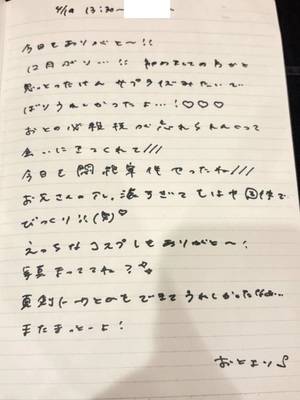 4/19 13:30〜
今日もありがと〜!!
12月ぶり…!! 初めましての方かと
思っとったけん サプライズみたいで
ばりうれしかったよ…!♡♡♡
おとの が忘れられんくって
会いにきてくれて///
今日も やったね///
お兄さんのアレ、濃すぎてもはや 体で
びっくり!!(笑)♡
えっちなコスプレもありがと〜!
写真とっててね?
真剣に とのも できてうれしかったなぁ…
またまっとーよ!
おとより